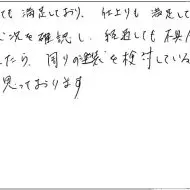 ても満足しており、仕上りも満足して
状況を確認し、経過しても不具
たら、周りの塗装を検討している
思っております